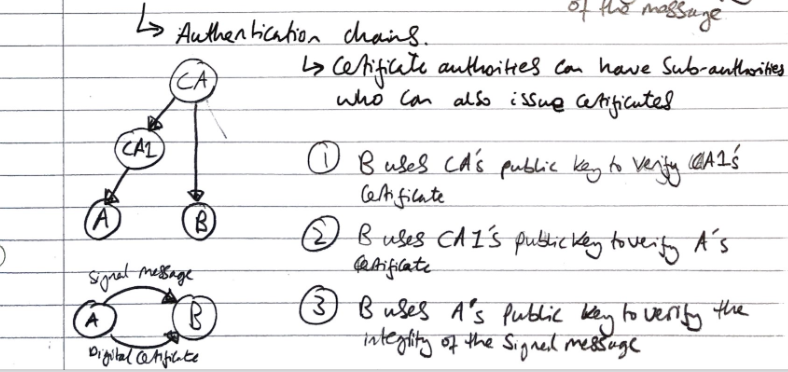 of the message
↳ Authentication chains.
↳ Certificate authorities can have sub-authorities
who can also issue certificates
CA
CA1
A
B
① B uses CA's public key to verify CA1's
certificate
② B uses CA1's public key to verify A's
certificate
Signed message
A
B
Digital certificate
③ B uses A's public key to verify the
integrity of the signed message